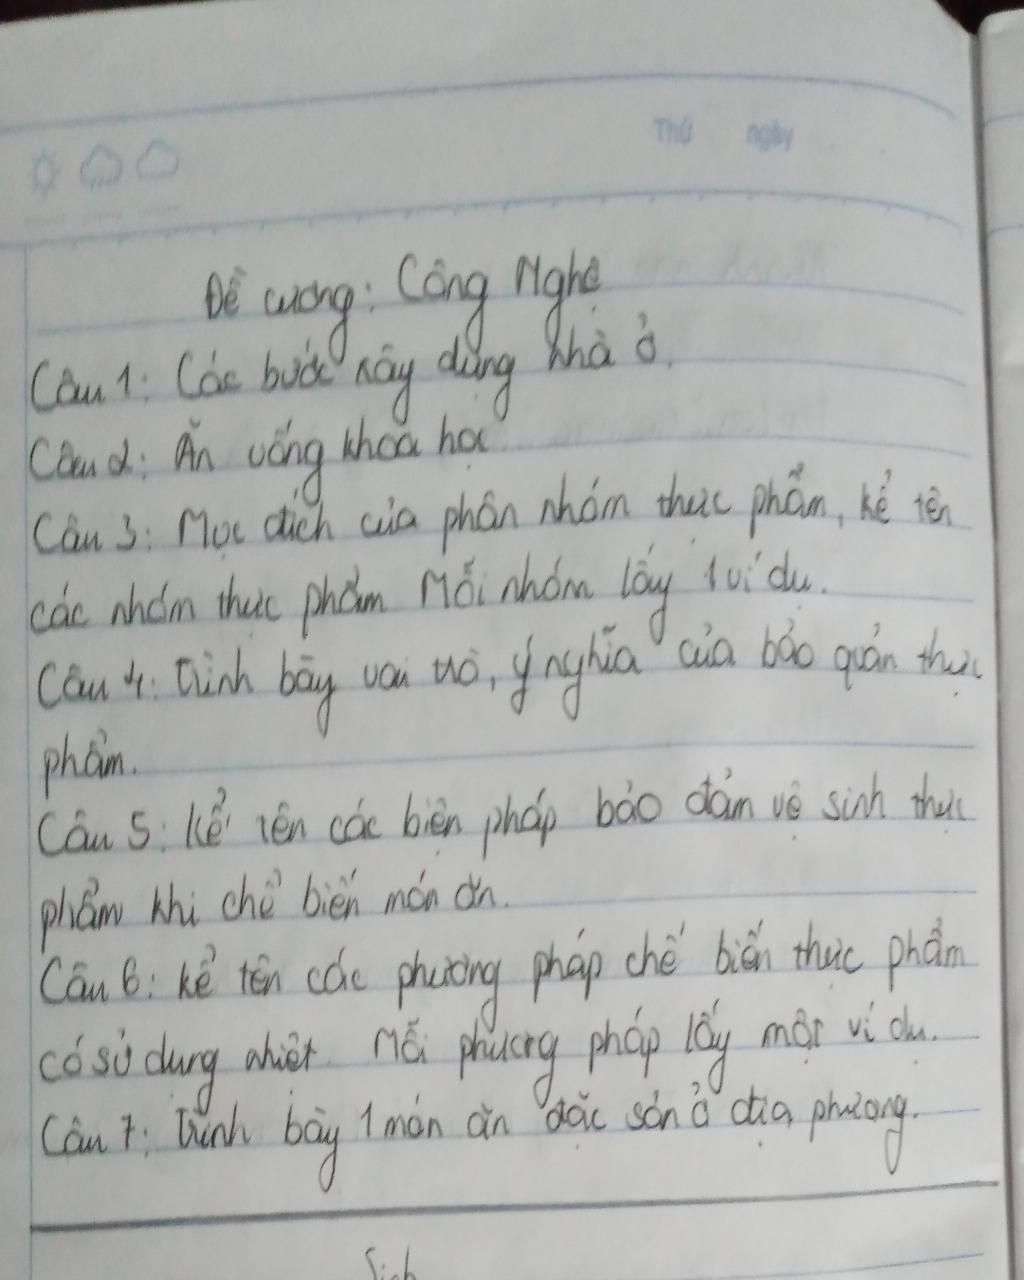 Thứ ngày
Đề cương: Công Nghệ
Câu 1: Các bước xây dựng nhà ở.
Câu 2: Ăn uống khoa học
Câu 3: Mục đích của phân nhóm thực phẩm, kể tên
các nhóm thực phẩm Mỗi nhóm lấy 1 ví dụ.
Câu 4: Trình bày vai trò, ý nghĩa của bảo quản thực
phẩm.
Câu 5: Kể tên các biện pháp bảo đảm vệ sinh thực
phẩm khi chế biến món ăn.
Câu 6: kể tên các phương pháp chế biến thực phẩm
có sử dụng nhiệt. Mỗi phương pháp lấy một ví dụ.
Câu 7: Trình bày 1 món ăn đặc sản ở địa phương.
Sinh